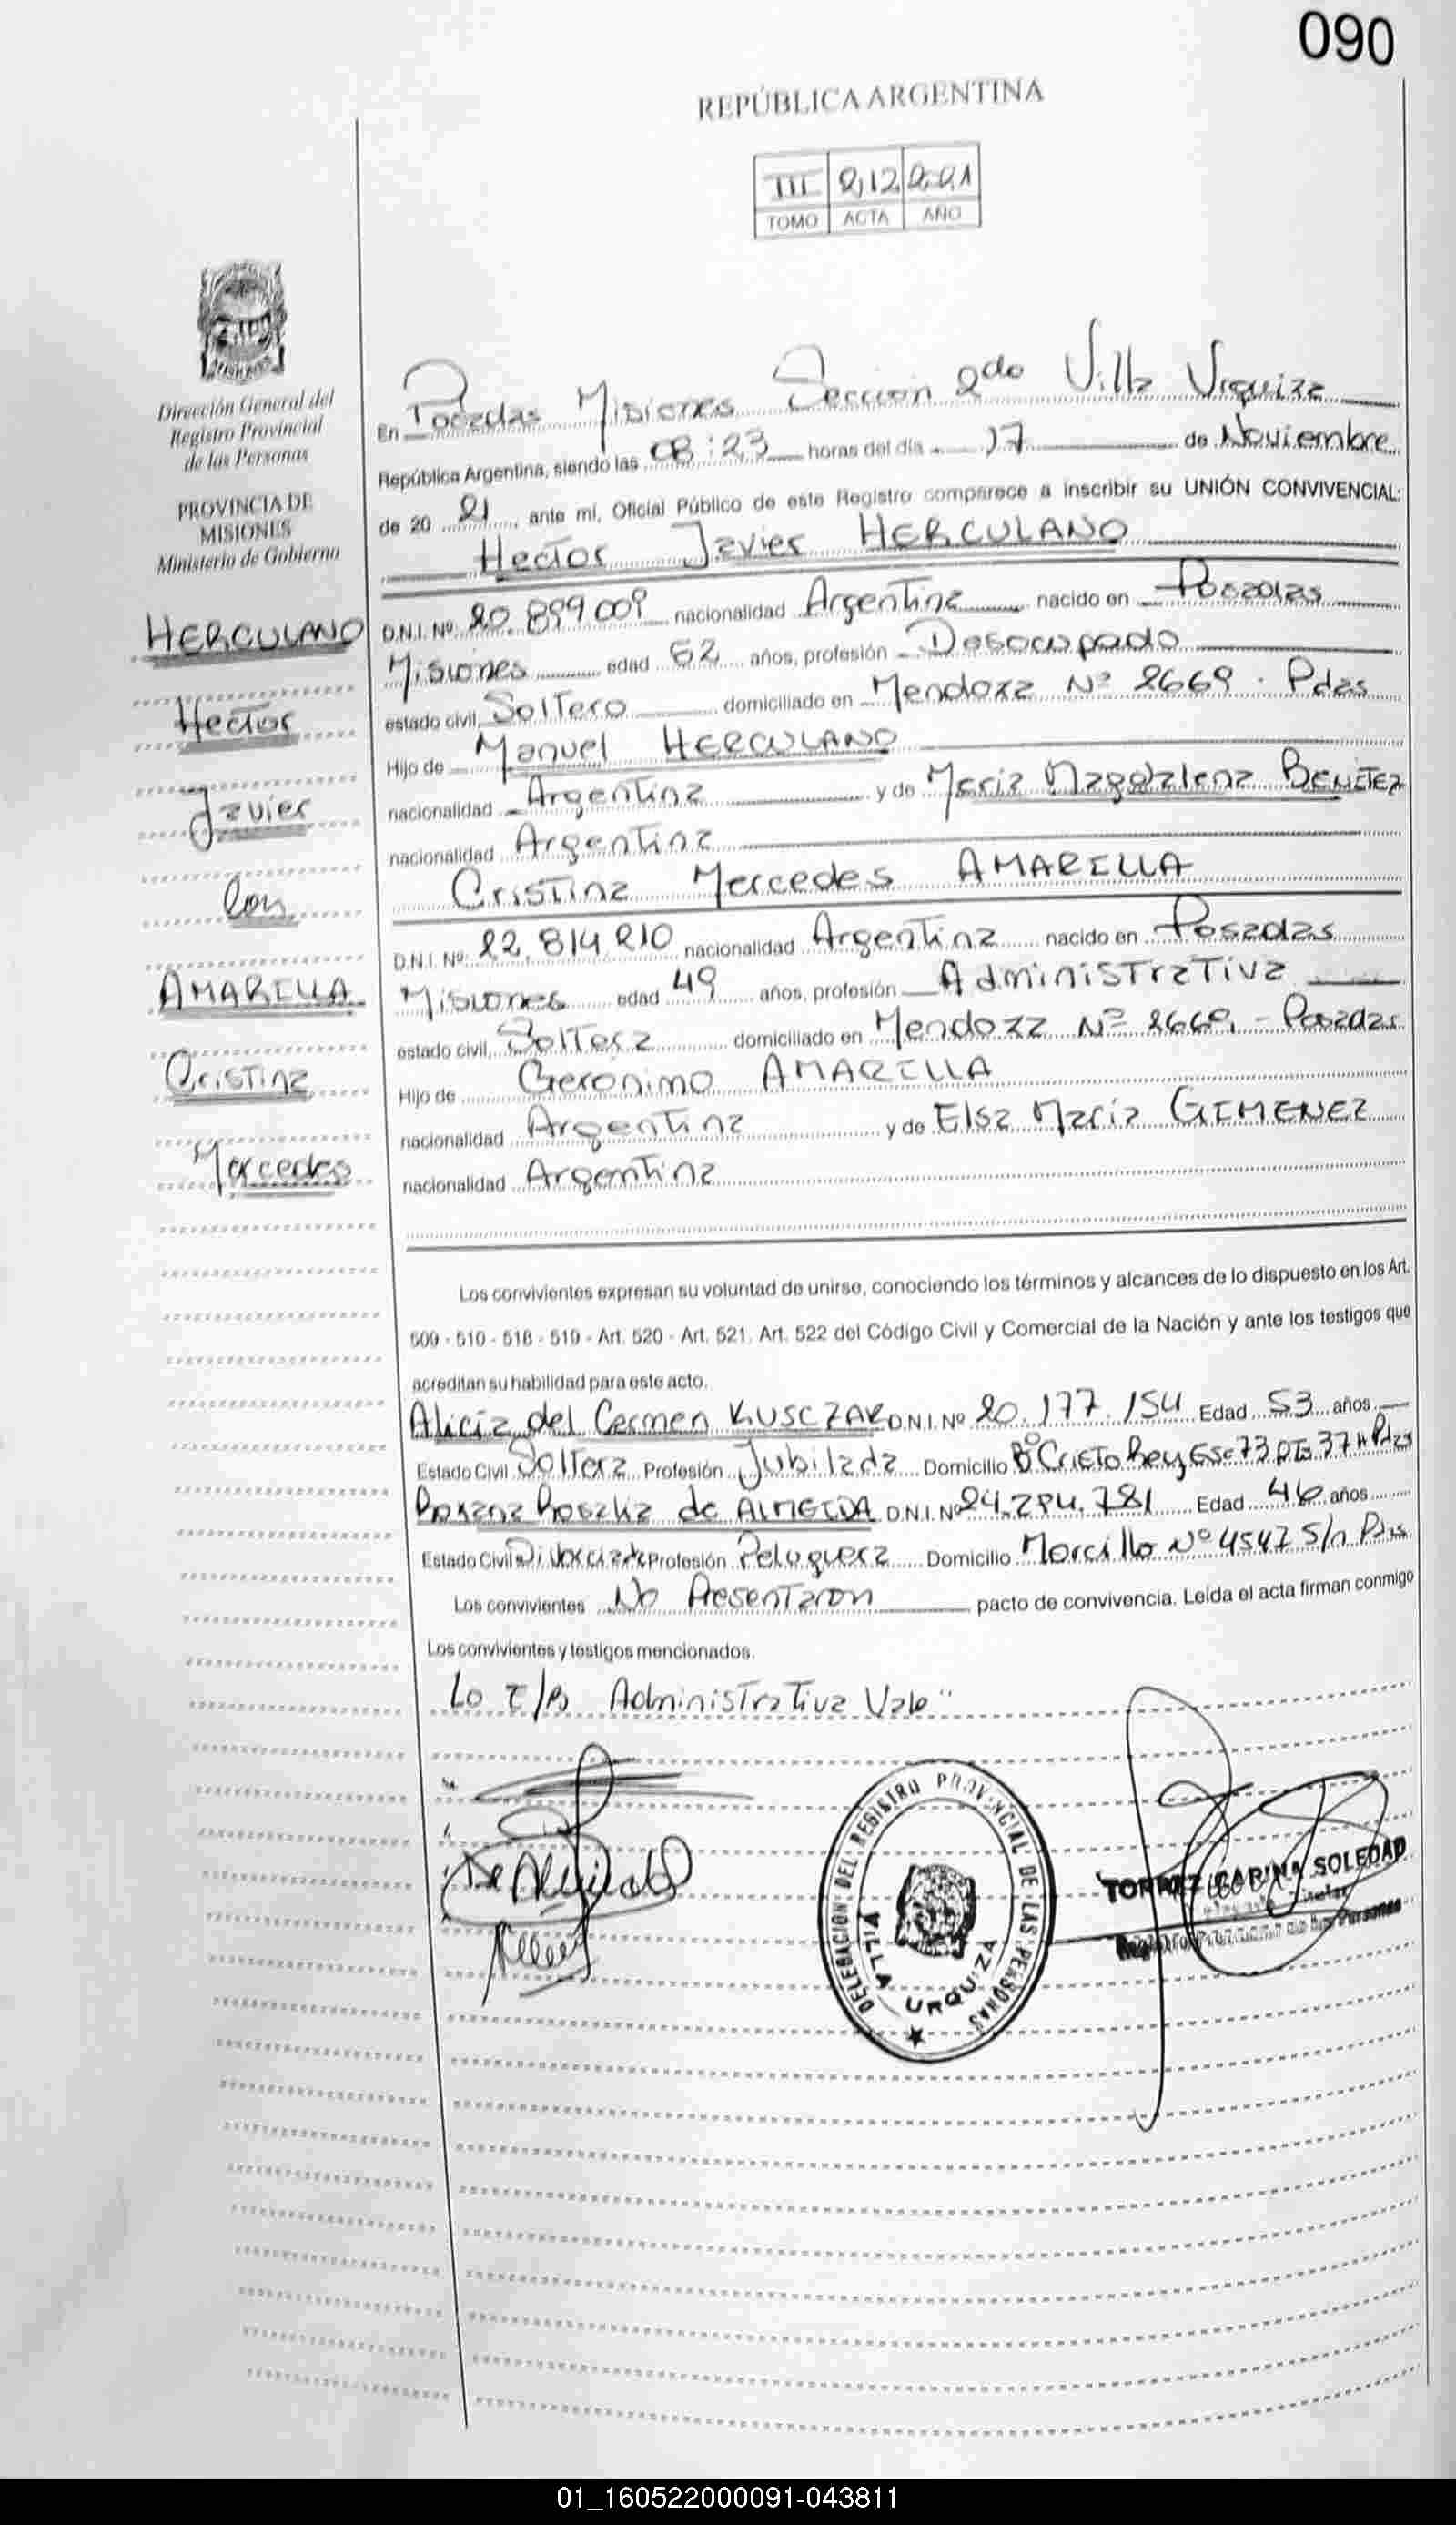 090
REPÚBLICA ARGENTINA
III 212 2021
TOMO ACTA AÑO
Dirección General del
Registro Provincial
de las Personas
PROVINCIA DE
MISIONES
Ministerio de Gobierno
HERCULANO
Hector
Javier
Con
AMARILLA
Cristina
Mercedes
En Posadas Misiones Seccion 2do Villa Urquiza
República Argentina, siendo las 08:23 horas del día 17 de Noviembre
de 20 21, ante mí, Oficial Público de este Registro comparece a inscribir su UNIÓN CONVIVENCIAL:
Hector Javier HERCULANO
D.N.I. Nº 20.899009 nacionalidad Argentina nacido en Posadas
Misiones edad 52 años, profesión Desocupado
estado civil, Soltero domiciliado en Mendoza Nº 2669. Pdas
Hijo de Manuel HERCULANO
nacionalidad Argentina y de Maria Magdalena BENITEZ
nacionalidad Argentina
Cristina Mercedes AMARILLA
D.N.I. Nº: 22.814210 nacionalidad Argentina nacido en Posadas
Misiones edad 49 años, profesión Administrativa
estado civil, Soltera domiciliado en Mendoza Nº 2669. - Posadas
Hijo de Geronimo AMARILLA
nacionalidad Argentina y de Elsa Maria GIMENEZ
nacionalidad Argentina
Los convivientes expresan su voluntad de unirse, conociendo los términos y alcances de lo dispuesto en los Art.
509 - 510 - 518 - 519 - Art. 520 - Art. 521, Art. 522 del Código Civil y Comercial de la Nación y ante los testigos que
acreditan su habilidad para este acto.
Alicia del Carmen KUSCZAK D.N.I. Nº 20.177.154 Edad 53 años
Estado Civil Soltera Profesión Jubilada Domicilio Bº Cristo Rey Esc 73 Pdas
Rosana Rosalia de ALMEIDA D.N.I. Nº 24.294.781 Edad 46 años
Estado Civil Divorciada Profesión Peluquera Domicilio Morcillo Nº 4547 S/n Pdas
Los convivientes No Presentaron pacto de convivencia. Leida el acta firman conmigo
Los convivientes y testigos mencionados.
Lo Administrativa Vale"
De Almeida
DELEGACIÓN DEL REGISTRO PROVINCIAL DE LAS PERSONAS
VILLA URQUIZA
TORREZ CARINA SOLEDAD
Registro Provincial de las Personas
01_160522000091-043811